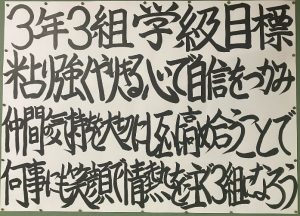 3年3組学級目標
粘り強くやりきる心で自信をつかみ
仲間の気持ちを大切にし互いに高め合うことで
何事にも笑顔で情熱を注ぐ3組になろう